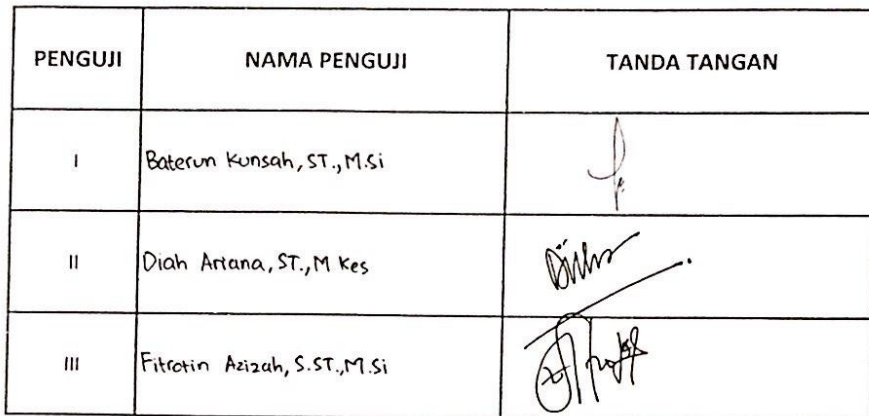 PENGUJI NAMA PENGUJI TANDA TANGAN
I Baterun Kunsah, ST., M.Si
II Diah Ariana, ST., M Kes
III Fitrotin Azizah, S.ST., M.Si